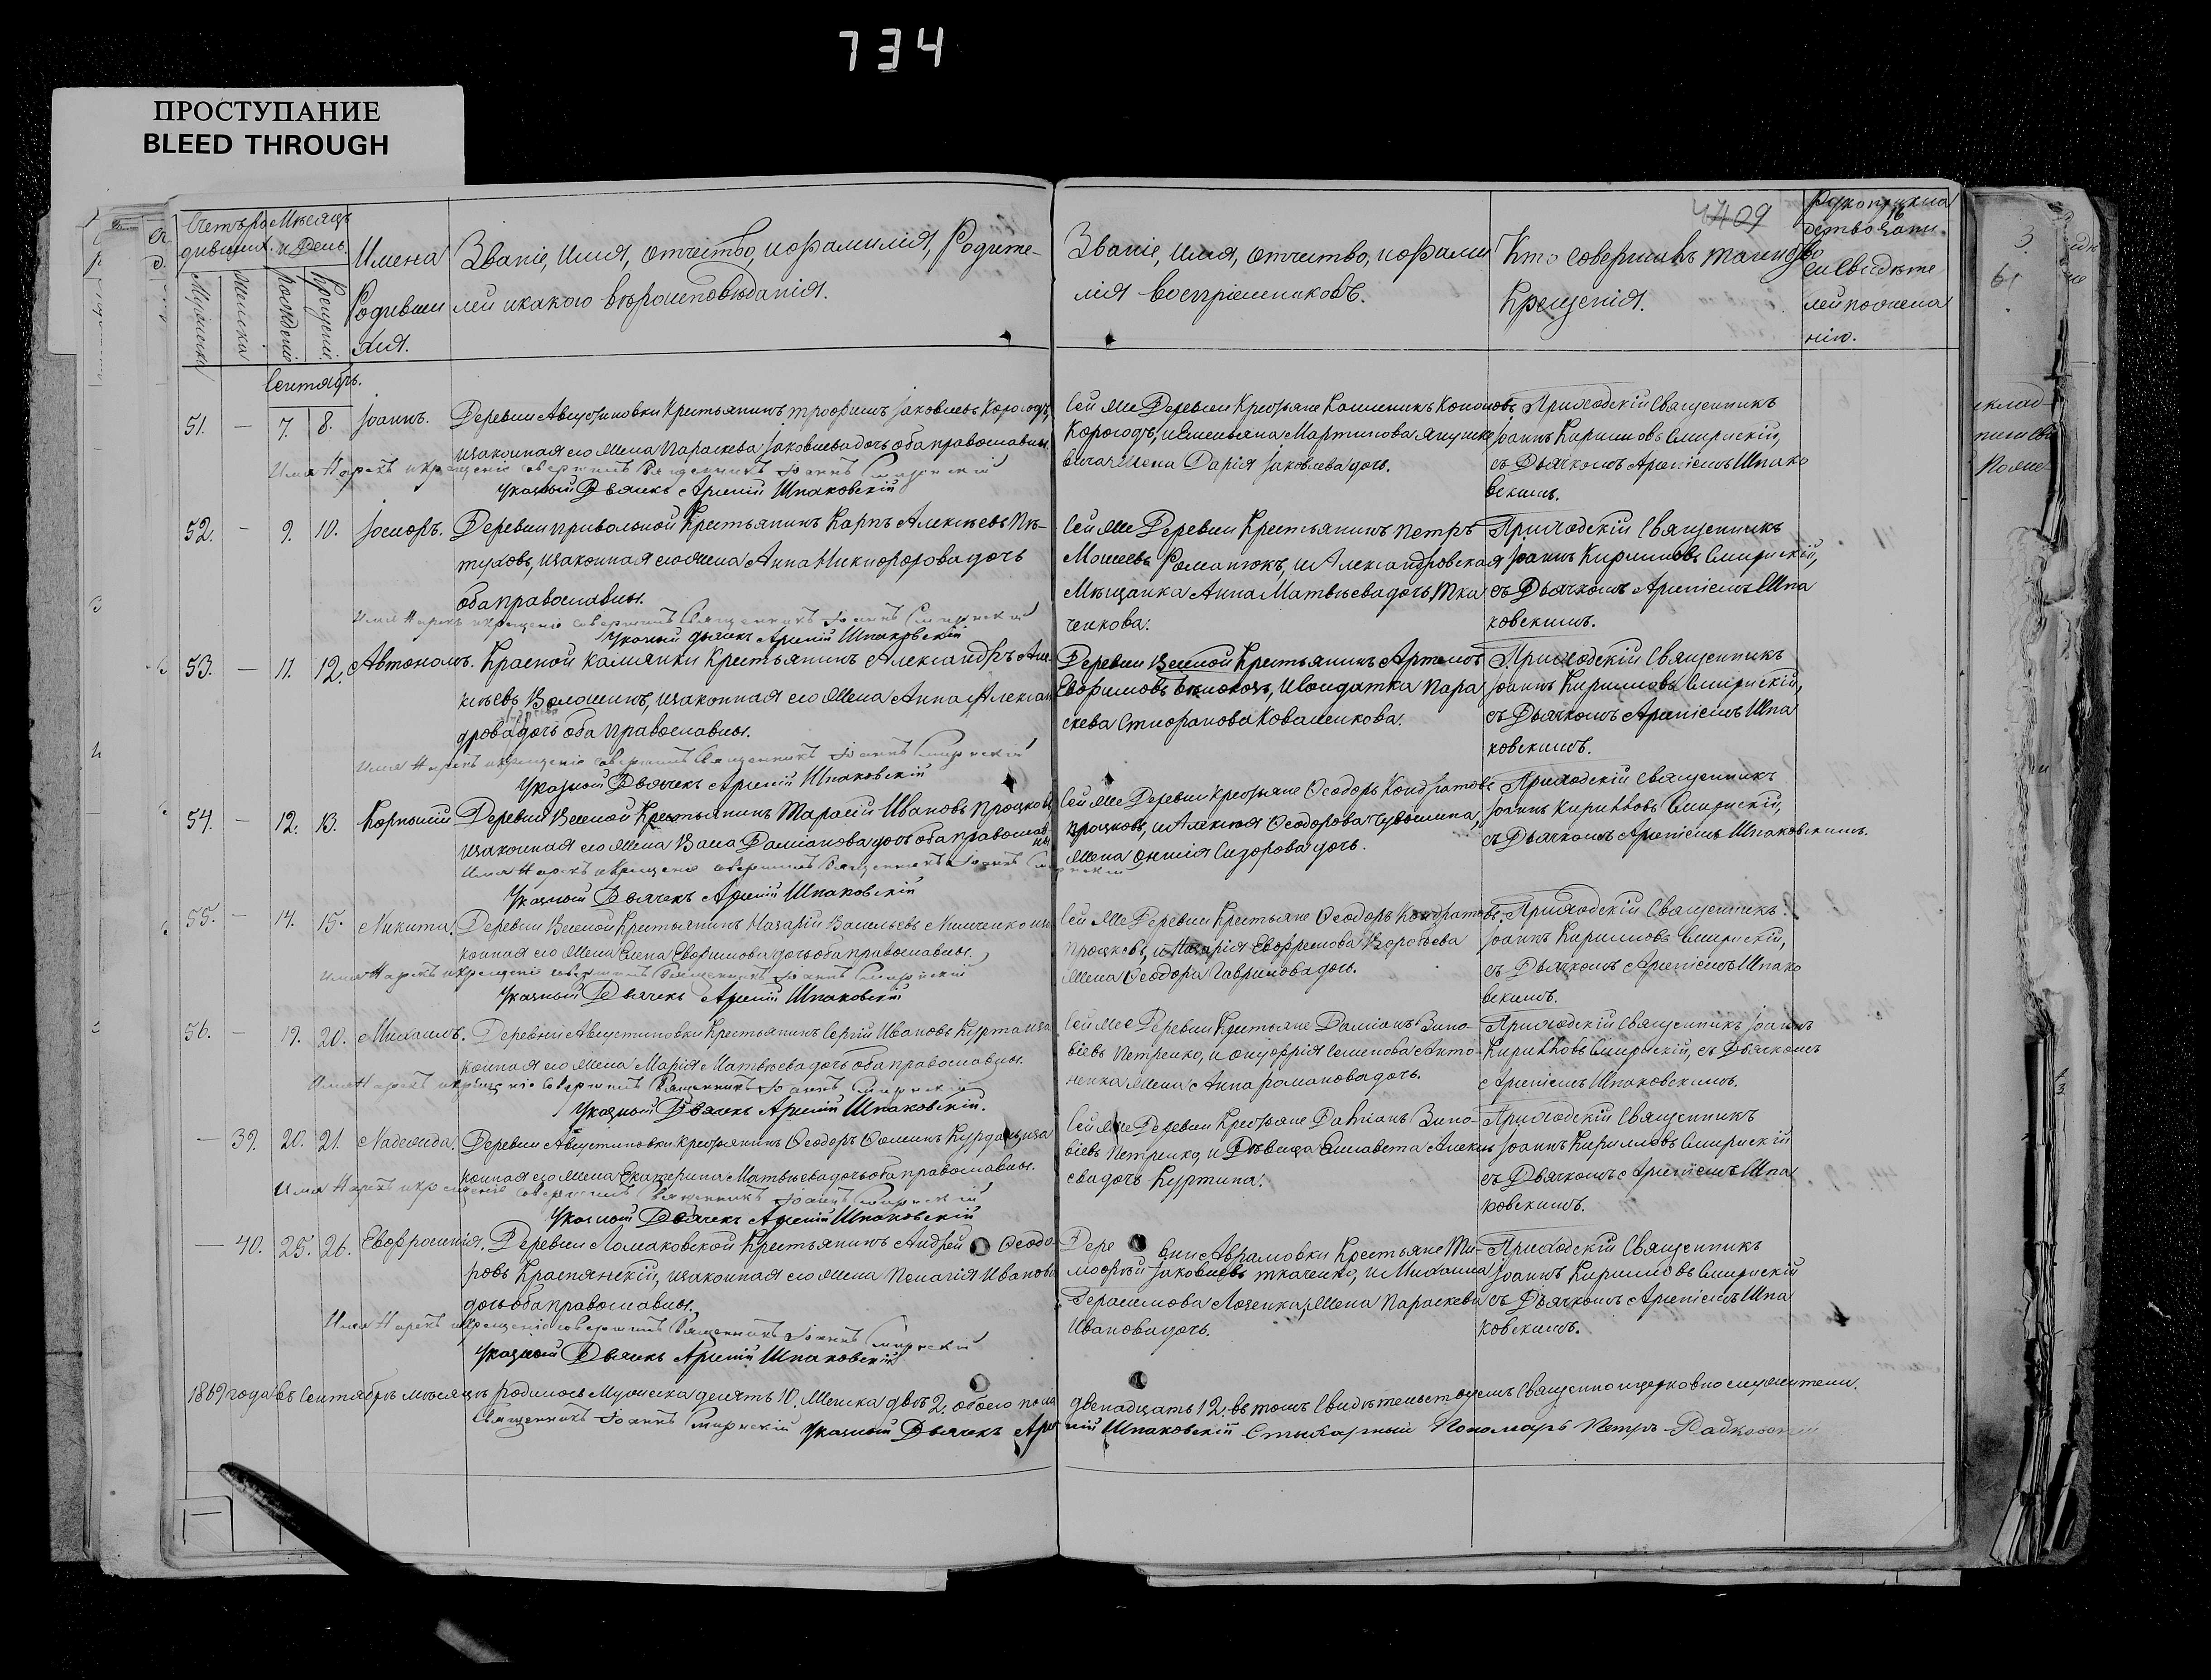 734
ПРОСТУПАНИЕ
BLEED THROUGH
Счетъ родившихся. Мѣсяцъ и День.
Мужеска Женска Рожденiя Крещенiя.
Имена Родившихся.
Званiе, Имя, Отчество, и Фамилiя, Родите-
лей и какого вѣроисповѣданiя.
Званiе, Имя, Отчество, и Фами
лiя Воспрiемниковъ.
Кто совершилъ таинство
Крещенiя.
409
Рукоприкла
детво запи
си Свидѣте
лей по жела
нiю.
Сентябрь.
51. — 7. 8. Iоаннъ.
Деревни Августиновки Крестьянинъ Трофимъ Iаковлевъ Корогодъ,
и законная его жена Параскева Iаковлева дочь оба православны.
Имя Нарекъ и крещенiе совершилъ Священникъ Iоаннъ Смирнскiй
Указный Дьячекъ Арсенiй Шпаковскiй
Сей же Деревни Крестьяне Каленикъ Кононовъ
Корогодъ, и Емельяна Мартинова
жена Дарiя Iаковлева дочь.
Приходскiй Священникъ
Iоаннъ Кирилловъ Смирнскiй,
съ Дьячкомъ Арсенiемъ Шпако
вскимъ.
52. — 9. 10. Iосифъ.
Деревни Привольной Крестьянинъ Карпъ Алексѣевъ Пѣ-
туховъ, и законная его жена Анна Никифорова дочь
оба православны.
Имя Нарекъ и крещенiе совершилъ Священникъ Iоаннъ Смирнскiй
Указный дьячекъ Арсенiй Шпаковскiй
Сей же Деревни Крестьянинъ Петръ
Моисеевъ Романюкъ, и Александровская
Мѣщанка Анна Матвѣева дочь Тка
ченкова.
Приходскiй Священникъ
Iоаннъ Кирилловъ Смирнскiй,
съ Дьячкомъ Арсенiемъ Шпа
ковскимъ.
53. — 11. 12. Автономъ.
Красной Камянки Крестьянинъ Александръ Але-
ксѣевъ Волошинъ, и законная его жена Анна Алексан
дрова дочь оба православны.
Имя Нарекъ и крещенiе совершилъ Священникъ Iоаннъ Смирнскiй
Указный Дьячекъ Арсенiй Шпаковскiй
Деревни Веселой Крестьянинъ Артемъ
Ефимовъ и Солдатка Пара
скева Стефанова Коваленкова.
Приходскiй Священникъ
Iоаннъ Кирилловъ Смирнскiй,
съ Дьячкомъ Арсенiемъ Шпа
ковскимъ.
54. — 12. 13. Корнилiй
Деревни Веселой Крестьянинъ Тарасiй Ивановъ Процковъ
и законная его жена Васа Дамiанова дочь оба православны
Имя Нарекъ и крещенiе совершилъ Священникъ Iоаннъ Смирнскiй
Указный Дьячекъ Арсенiй Шпаковскiй
Сей же Деревни Крестьяне Ѳеодоръ Кондратовъ
Процковъ, и Алексея Ѳеодорова
жена Сидорова дочь.
Приходскiй Священникъ
Iоаннъ Кирилловъ Смирнскiй,
съ Дьячкомъ Арсенiемъ Шпаковскимъ.
55. — 14. 15. Никита.
Деревни Веселой Крестьянинъ Назарiй Васильевъ Кличенко и за
конная его жена Елена Евфимова дочь оба православны.
Имя Нарекъ и крещенiе совершилъ Священникъ Iоаннъ Смирнскiй
Указный Дьячекъ Арсенiй Шпаковскiй
Сей же Деревни Крестьяне Ѳеодоръ Кондратовъ
Процковъ, и Евфремова Воробьева
жена Ѳеодора Гаврилова дочь.
Приходскiй Священникъ
Iоаннъ Кирилловъ Смирнскiй,
съ Дьячкомъ Арсенiемъ Шпако
вскимъ.
56. — 19. 20. Михаилъ.
Деревни Августиновки Крестьянинъ Сергiй Ивановъ и за
конная его жена Марiя Матвѣева дочь оба православны.
Имя Нарекъ и крещенiе совершилъ Священникъ Iоаннъ Смирнскiй
Указный Дьячекъ Арсенiй Шпаковскiй.
Сей же Деревни Крестьяне Дамiанъ Зино-
вiевъ Петренко, и Онуфрiя Семенова Анто-
ненка жена Анна Романова дочь.
Приходскiй Священникъ Iоаннъ
Кирилловъ Смирнскiй, съ Дьячкомъ
Арсенiемъ Шпаковскимъ.
— 39. 20. 21. Надежда.
Деревни Августиновки Крестьянинъ Ѳеодоръ Ѳоминъ и за
конная его жена Екатерина Матвѣева дочь оба православны.
Имя Нарекъ и крещенiе совершилъ Священникъ Iоаннъ Смирнскiй
Указный Дьячекъ Арсенiй Шпаковскiй
Сей же Деревни Крестьяне Дамiанъ Зино-
вiевъ Петренко, и Дѣвица Елисавета Алексѣ
ева дочь Куртина.
Приходскiй Священникъ
Iоаннъ Кирилловъ Смирнскiй
съ Дьячкомъ Арсенiемъ Шпа
ковскимъ.
— 40. 25. 26. Евфросинiя.
Деревни Ломаковской Крестьянинъ Андрей Ѳеодо
ровъ Краснянскiй, и законная его жена Пелагiя Иванова
дочь оба православны.
Имя Нарекъ и крещенiе совершилъ Священникъ Iоаннъ Смирнскiй
Указный Дьячекъ Арсенiй Шпаковскiй
Деревни Аврамовки Крестьяне Ти-
мофей Iаковлевъ Ткаченко, и Михаила
Герасимова Лозенка, жена Параскева
Иванова дочь.
Приходскiй Священникъ
Iоаннъ Кирилловъ Смирнскiй
съ Дьячкомъ Арсенiемъ Шпа
ковскимъ.
1869 года въ Сентябрѣ мѣсяцѣ родилось Мужеска десять 10. Женска двѣ 2. обоего пола двенадцать 12. въ томъ Свидѣтельствуемъ Священно и церковно служители.
Священникъ Iоаннъ Смирнскiй Указный Дьячекъ Арсенiй Шпаковскiй Стихарный Пономарь Петръ Радковскiй